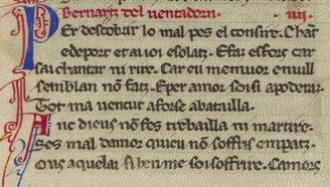 Bernartz del uentadorn. iiij.
Per descobrir lo mal pes el consire. Chan
e deport et ai ioi e solatz. E faz esforç car
sai chantar ni rire. Car eu me muor e null
semblan nō fatz. E per amor soi si apoderatz
Tot ma uencut a força e batailla.
Anc dieus nō fes trebailla ni martire.
Ses mal damor quieu nō soffris em patz.
Mas daquel si be me soi soffrire. Camors